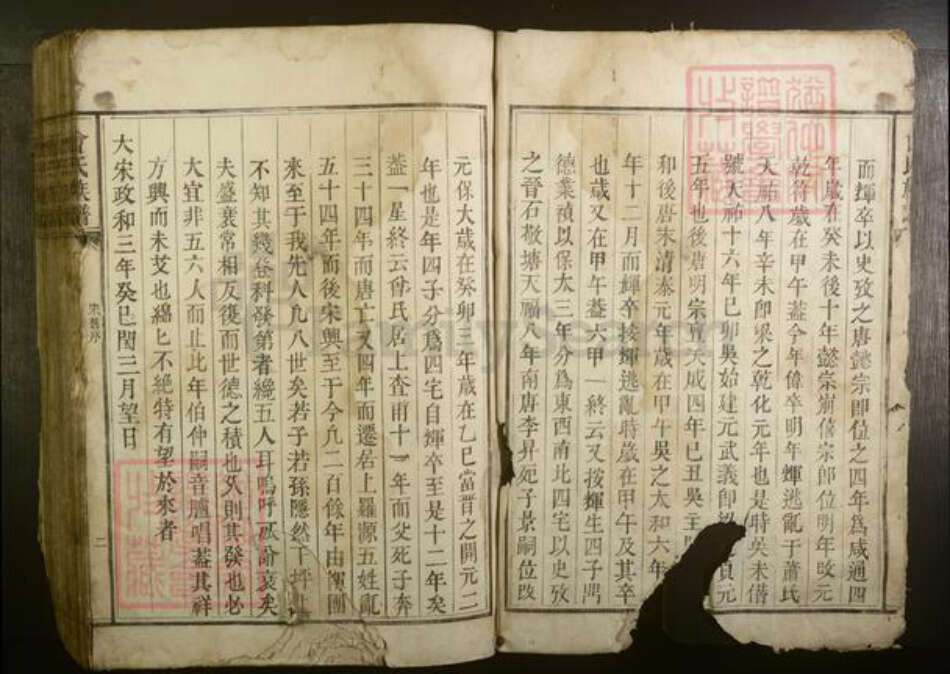 而輝卒以史攷之唐懿宗即位之四年爲咸通四
年歲在癸未後十年懿宗崩僖宗即位明年改元
乾符歲在甲午蓋今年偉卒明年輝逃亂于蕭氏
天祐八年辛未即梁之乾化元年也是時吳未僣
號天祐十六年己卯吳始建元武義即梁 貞元
五年也後唐明宗亶天成四年己丑吳主
和後唐末清泰元年歲在甲午吳之太和六年
年十二月而輝卒按輝逃亂時歲在甲午及其卒
也歲又在甲午蓋六甲一終云又按輝生四子
德業禎以保大三年分爲東西南北四宅以史攷
之晉石敬塘天福八年南唐李昇死子景嗣位改
元保大歲在癸卯三年歲在乙巳當晋之開元二
年也是年四子分爲四宅自輝卒至是十二年矣
蓋一星終云曾氏居上查甫十一年而父死子奔
三十四年而唐亡又四年而遷居上羅源五姓亂
五十四年而後宋興至于今凡二百餘年由 團
來至于我先人凡八世矣若子若孫隱然
不知其幾登科發第者纔五人耳嗚呼 哀矣
夫盛衰常相反復而世德之積也久則其發也必
大宜非五六人而止比年伯仲嗣音臚唱蓋其祥
方興而未艾也綿匕不絶特有望於來者
大宋政和三年癸巳閏三月望日
曾氏族譜
宋舊序
二